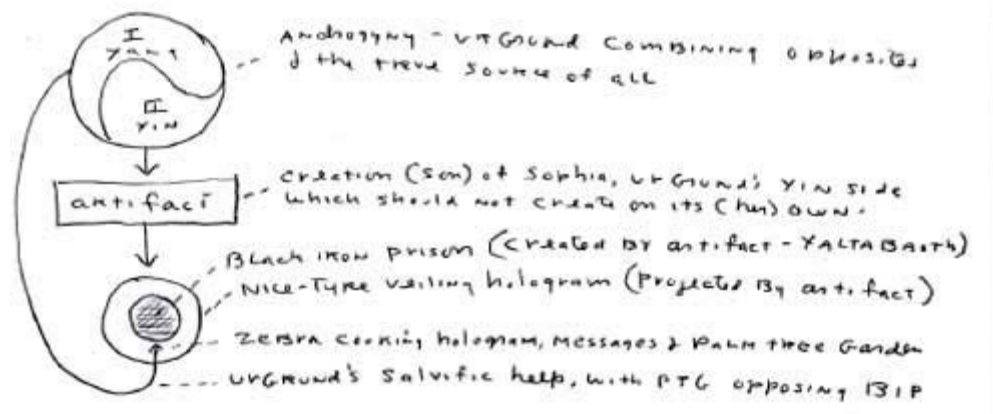 I
YANG
II
YIN
Androgyny - UrGrund combining opposites
& the true source of all
artifact
creation (son) of Sophia, UrGrund's YIN side
which should not create on its (her) own.
Black iron prison (created by artifact - YALTABAOTH)
Nice-Type veiling hologram (Projected By artifact)
Zebra cooking hologram, messages & Palm tree Garden
UrGrund's Salvific help, with PTG opposing BIP